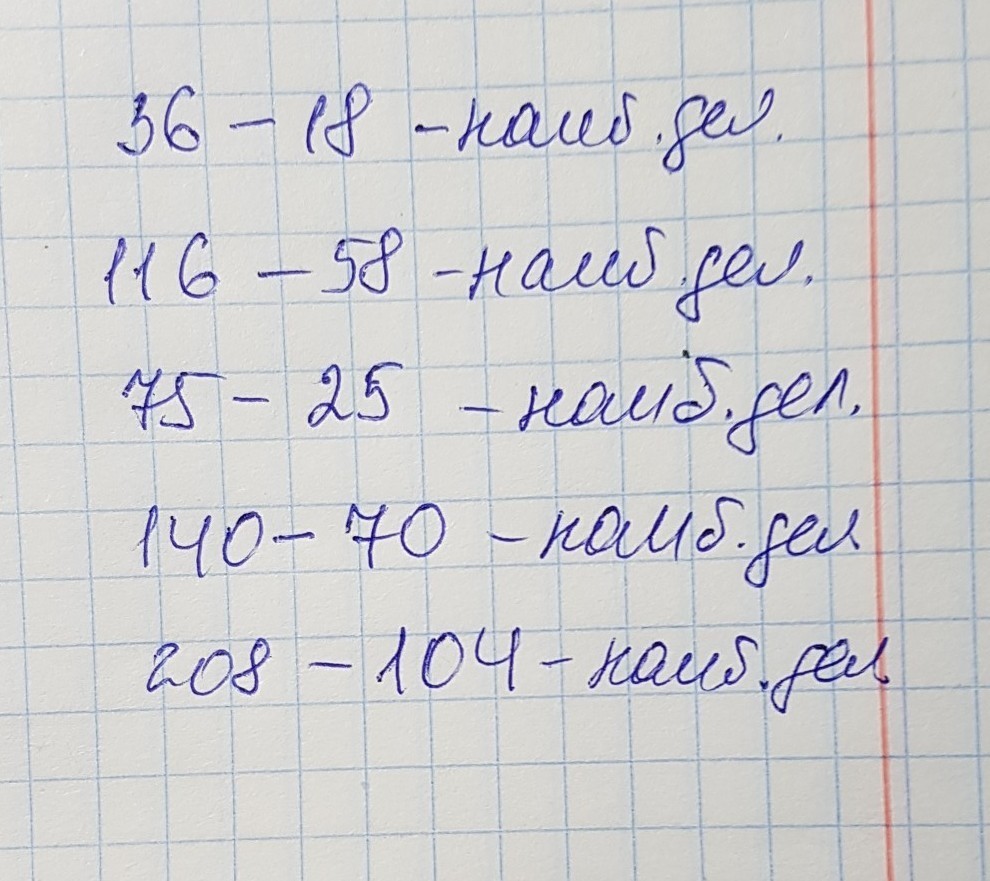 36 - 18 - наиб. дел.
116 - 58 - наиб. дел.
75 - 25 - наиб. дел.
140 - 70 - наиб. дел
208 - 104 - наиб. дел